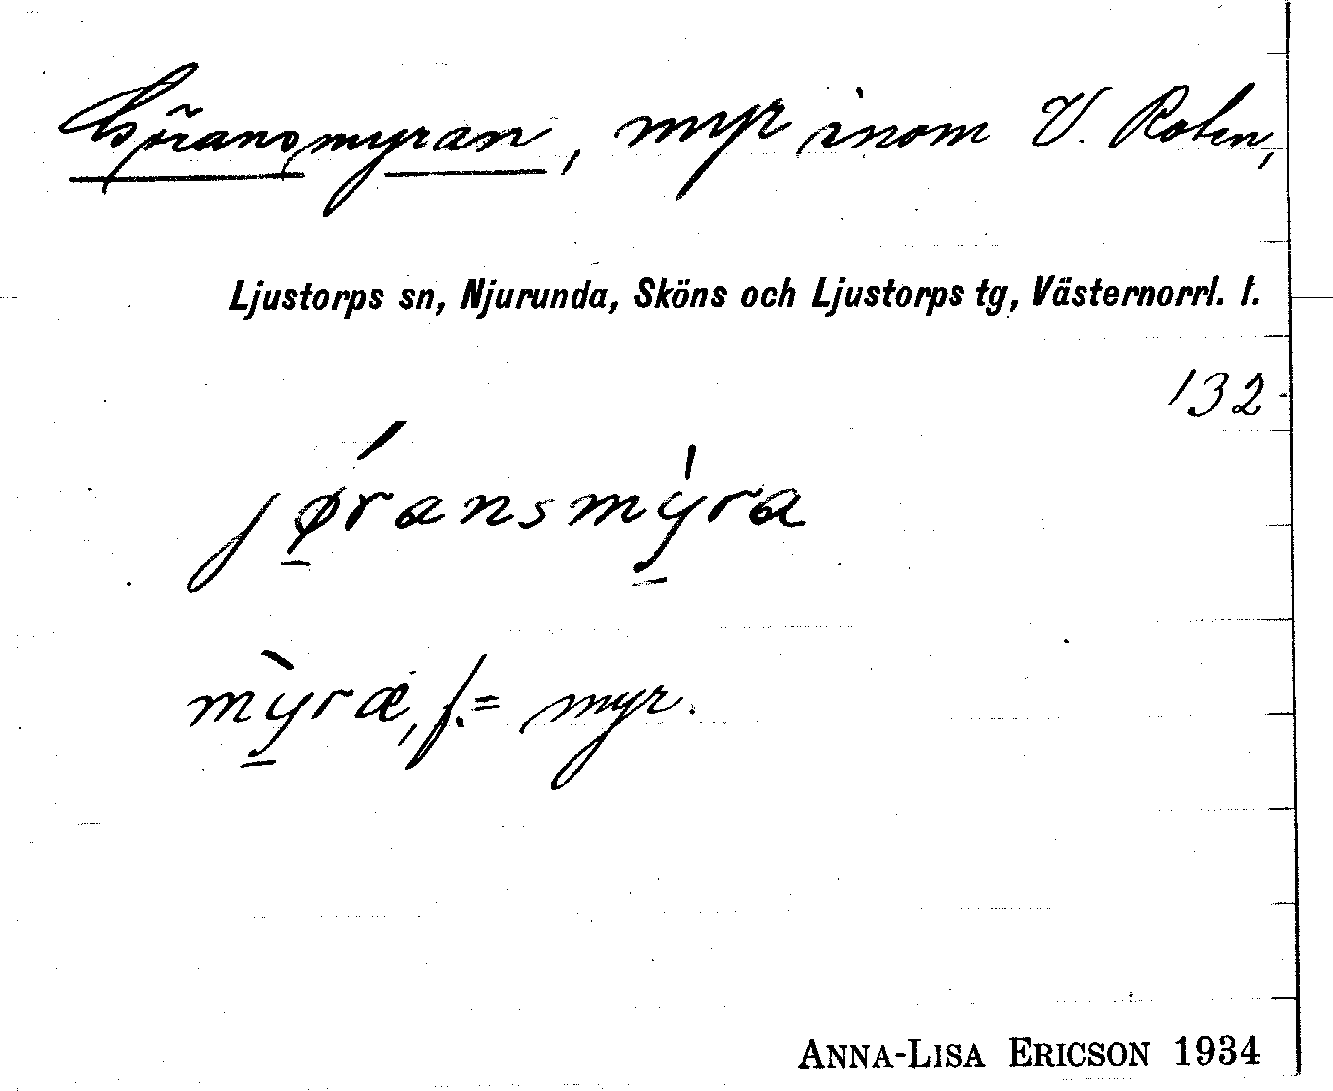 Göransmyran, myr inom V. Roten,
Ljustorps sn, Njurunda, Sköns och Ljustorps tg, Västernorrl. l.
132
jøransmyra
myra, f. = myr.
ANNA-LISA ERICSON 1934